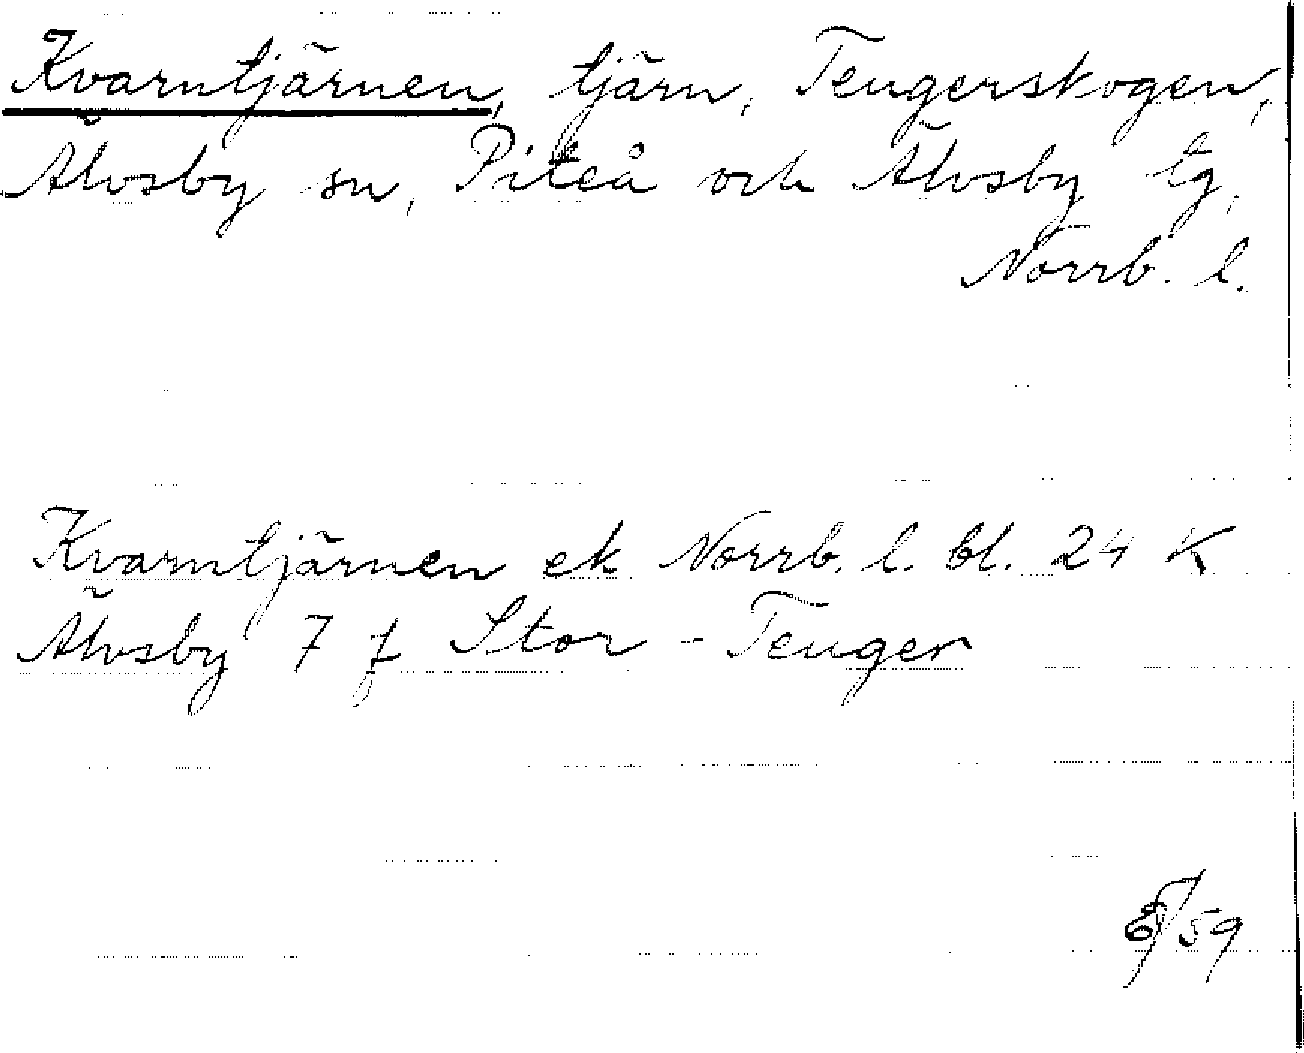 Kvarntjärnen, tjärn, Teugerskogen,
Älvsby sn, Piteå och Älvsby tg,
Norrb. l.
Kvarntjärnen ek Norrb. l. bl. 24 K
Älvsby 7 f Stor-Teuger
/59